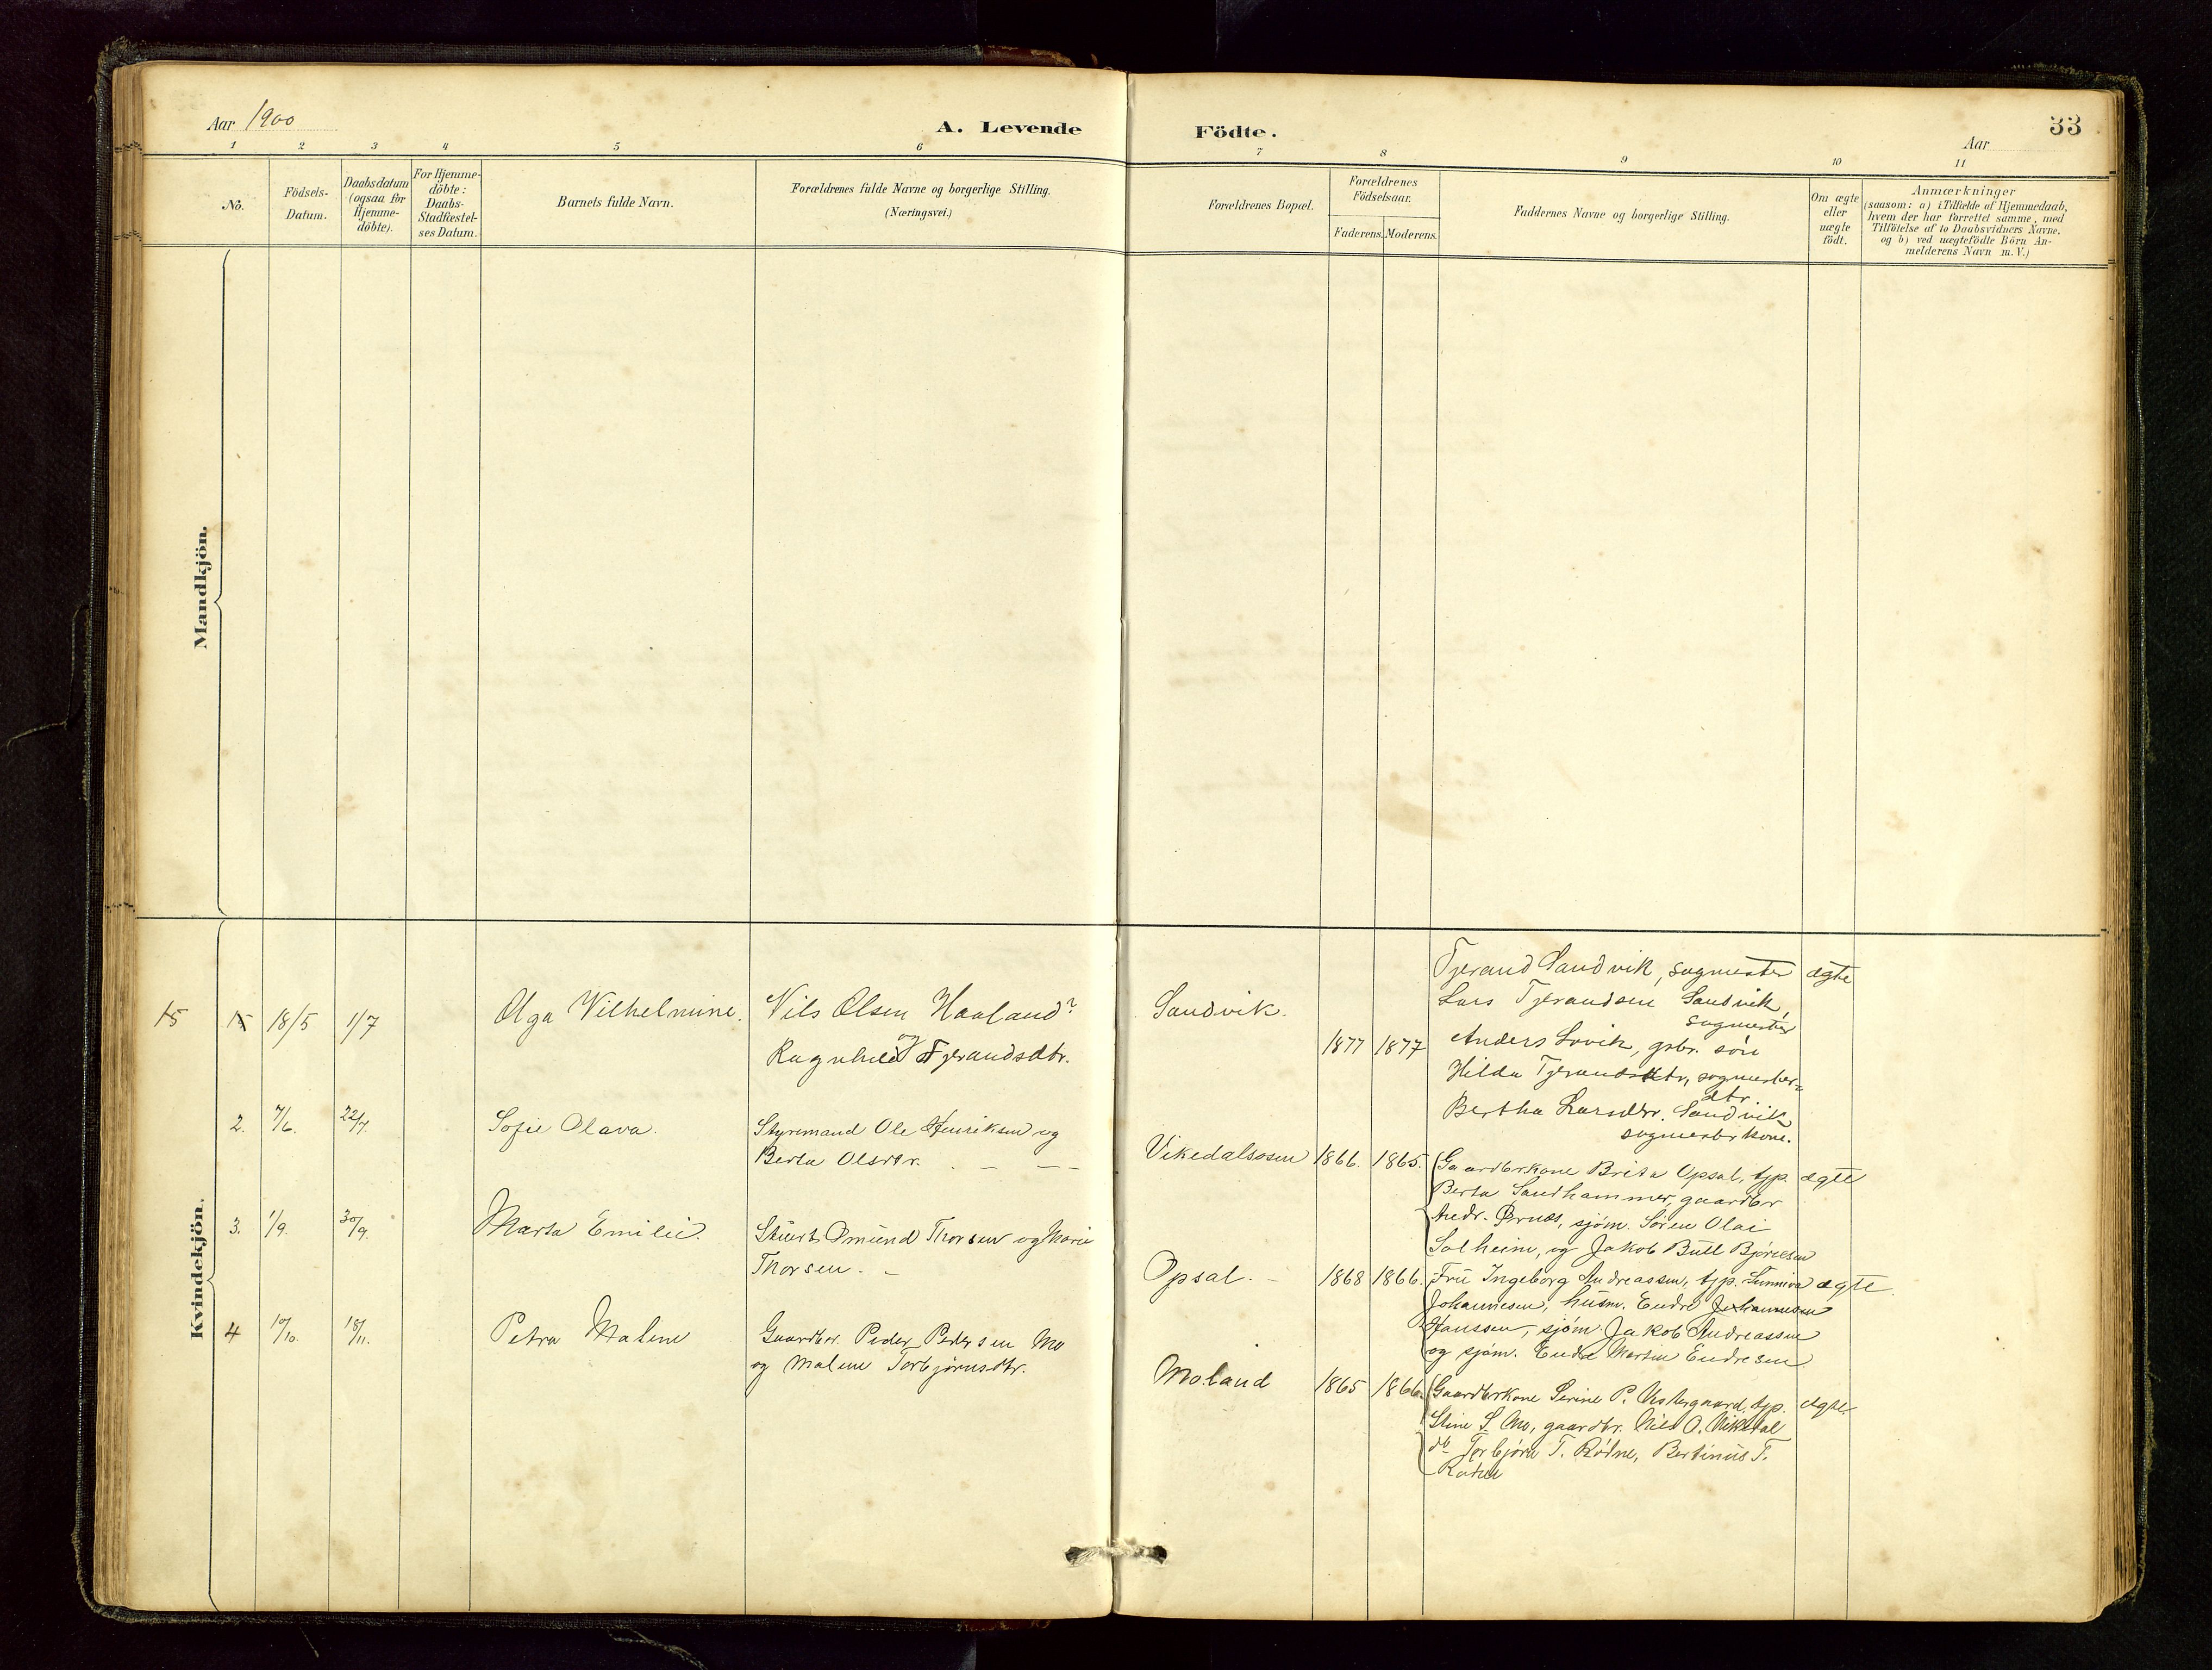 Aar 1900
A. Levende
Födte.
Aar
33
1 2 3 4 5 6 7 8 9 10 11
No.
Födsels-
Datum.
Daabsdatum
(ogsaa for
Hjemme-
döbte).
For Hjemme-
döbte:
Daabs-
Stadfæstel-
ses Datum.
Barnets fulde Navn.
Forældrenes fulde Navne og borgerlige Stilling.
(Næringsvei.)
Forældrenes Bopæl.
Forældrenes
Födselsaar.
Faderens. Moderens.
Faddernes Navne og borgerlige Stilling.
Om ægte
eller
uægte
födt.
Anmærkninger
(saasom: a) i Tilfælde af Hjemmedaab,
hvem der har forrettet samme, med
Tilföielse af to Daabsvidners Navne,
og b) ved uægtefödte Börn An-
melderens Navn m. V.)
Mandkjön.
Kvindekjön.
15 18/5 1/7
Olga Vilhelmine.
Nils Olsen Haaland?
og
Ragnhild Tjerandsdtr.
Sandvik.
1877 1877
Tjerand Sandvik, sogmester
Lars Tjerandsen Sandvik,
sogmester
Anders Lovik, gbr. søn
Hilda Tjerandsdtr, sogmester-
dtr.
Bertha Larsdtr. Sandvik
sogmester kone.
ægte
2. 7/6. 22/7.
Sofie Olava.
Styrmand Ole Henriksen og
Berta Olsdtr. - -
Vikedalsosen 1866. 1865.
Gaardbrkone Brita Opsal, tjp.
Berta Sandhammer, gaardbr
Andr. Ørnes, sjøm. Søren Olai
Solheim, og Jakob Bull Bjørnsen
ægte
3. 1/9. 30/9.
Marta Emilie.
Stuert Omund Thorsen og Marie
Thorsen. -
Opsal. - 1868 1866.
Fru Ingeborg Andreassen, tjp. Sunniva
Johannesen, husm. Endre Johannesen
Hanssen, sjøm. Jakob Andreassen
og sjøm. Endre Martin Endresen
ægte.
4 10/10. 18/11.
Petra Malene
Gaardbr. Peder Pedersen Mo
og Malene Torbjørnsdtr.
Moland 1865 1866.
Gaardbrkone Serine P. Østergaard, tjp.
Stine S. Mo, gaardbr. Nils O.
do Torbjørn T. Rødne, Bertinius T.
Rødne
ægte.